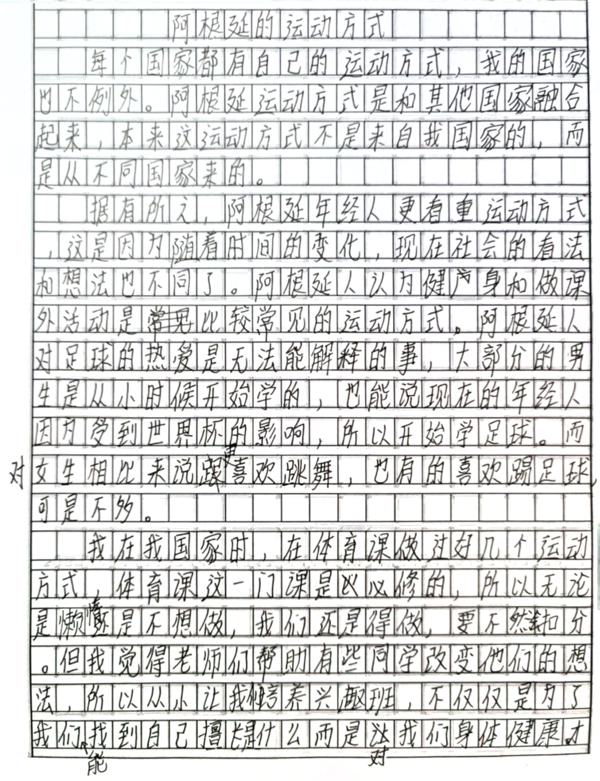 阿根延的运动方式
每个国家都有自己的运动方式，我的国家
也不例外。阿根延运动方式是和其他国家融合
起来，本来这运动方式不是来自我国家的，而
是从不同国家来的。
据有所之，阿根延年经人更看重运动方式
，这是因为随着时间的变化，现在社会的看法
和想法也不同了。阿根延人认为健身和做课
外活动是比较常见的运动方式。阿根延人
对足球的热爱是无法能解释的事，大部分的男
生是从小时候开始学的，也能说现在的年经人
因为多到世界杯的影响，所以开始学足球。而
对女生相比来说更喜欢跳舞，也有的喜欢踢足球，
可是不多。
我在我国家时，在体育课做过好几个运动
方式，体育课这一门课是必修的，所以无论
是懒惰还是不想做，我们还是得做，要不然扣分
。但我觉得老师们帮助有些同学改变他们的想
法，所以从小让我培养兴趣班，不仅仅是为了
我们能找到自己擅长是什么而是对我们身体健康才